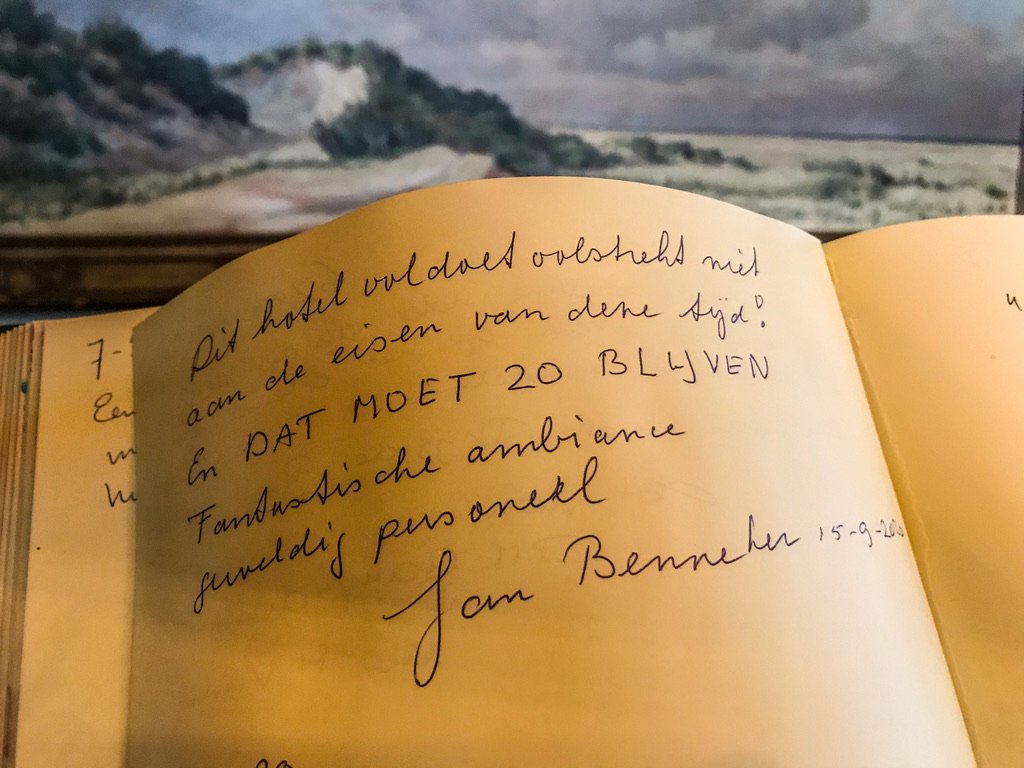 7-
Een
Dit hotel voldoet volstrekt niet
aan de eisen van deze tijd!
En DAT MOET ZO BLIJVEN
Fantastische ambiance
geweldig personeel
Jan Benneker 15-9-2020